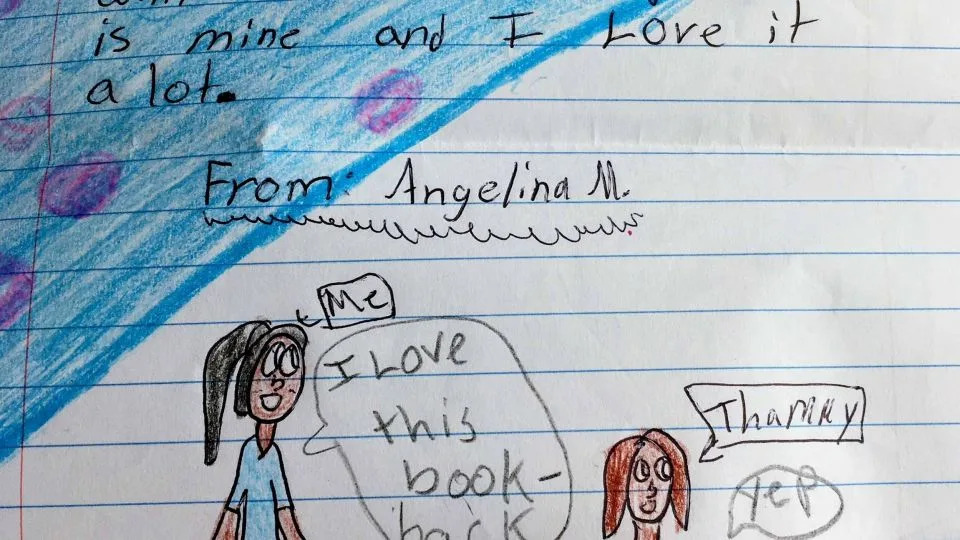 is mine and I Love it
a lot.
From: Angelina M.
Me
I Love
this
book-
back
Thammy
Yep